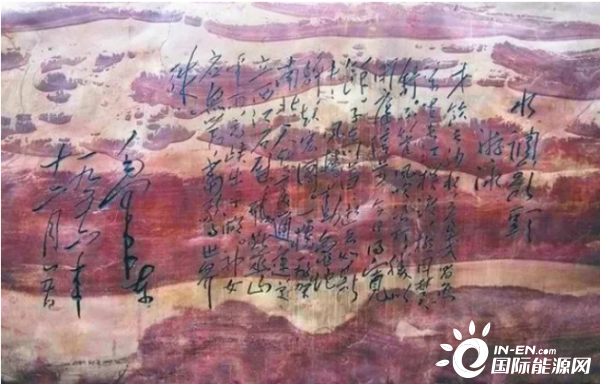 水调歌头
游泳
才饮长沙水又食武昌鱼
万里长江横渡极目楚天
舒不管风吹浪打胜似
闲庭信步今日得宽
夫风樯动龟蛇
静起宏图一桥飞架
南北天堑变通途更立
西江石壁截断巫山
云雨高峡出平湖神女
应无恙当惊世界
殊
毛泽东
一九五六年
十二月
IN-EN.com
国际能源网